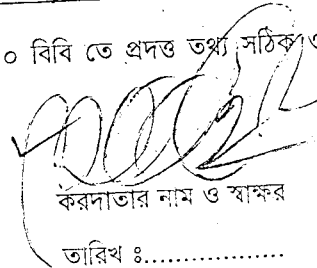 ০ বিবি তে প্রদত্ত তথ্য সঠিক ও
করদাতার নাম ও স্বাক্ষর
তারিখ ঃ..................